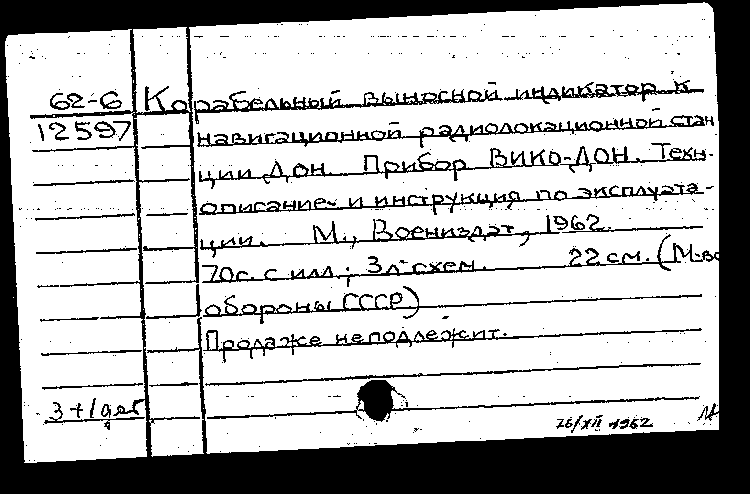 62-6 Корабельный выносной индикатор к
12597 навигационной радиолокационной стан
ции Дон. Прибор ВИКО-ДОН. Техн.
описание и инструкция по эксплуата-
ции. М., Воениздат, 1962.
70с. с илл.; 3л. схем. 22 см. (М-во
обороны СССР)
Продаже неподлежит.
3+1
26/XII 1962